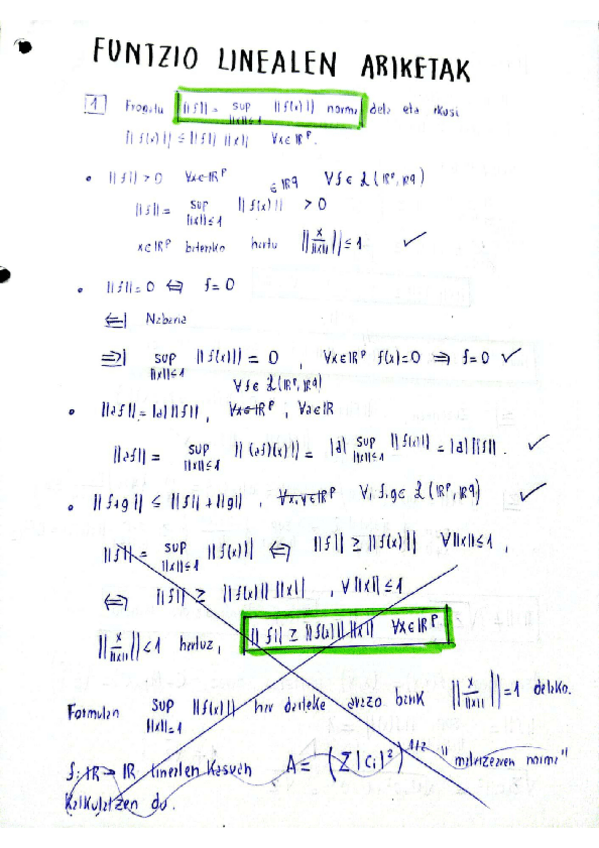 FUNTZIO LINEALEN ARIKETAK
1 Frogatu ||f|| = sup ||f(x)|| norma dela eta ikusi
||x||≤1
||f(x)|| ≤ ||f|| ||x|| ∀x∈ℝᵖ.
• ||f|| > 0 ∀x∈ℝᵖ ∈ℝq ∀f∈ L(ℝᵖ,ℝq)
||f|| = sup ||f(x)|| > 0
||x||≤1
x∈ℝᵖ bitereiko hartu ||x/||x|||| ≤ 1 ✓
• ||f|| = 0 ⇔ f=0
⇐| Nabaria
⇒| sup ||f(x)|| = 0 , ∀x∈ℝᵖ f(x)=0 ⇒ f=0 ✓
||x||≤1
∀f∈ L(ℝᵖ,ℝq)
• ||af|| = |a| ||f|| , ∀x∈ℝᵖ , ∀a∈ℝ
||af|| = sup ||(af)(x)|| = |a| sup ||f(x)|| = |a| ||f|| . ✓
||x||≤1 ||x||≤1
• ||f+g|| ≤ ||f|| + ||g|| , ∀x,y∈ℝᵖ ∀ f,g∈ L(ℝᵖ,ℝq) ✓
||f|| = sup ||f(x)|| ⇔ ||f|| ≥ ||f(x)|| ∀||x||≤1 ,
||x||≤1
⇔ ||f|| ≥ ||f(x)|| ||x|| , ∀ ||x||≤1
||x/||x|||| ≤ 1 hartuz, ||f|| ≥ ||f(x)|| ||x|| ∀x∈ℝᵖ
Formulan sup ||f(x)|| har daiteke arazo barik ||x/||x|||| = 1 delako.
||x||=1
f: ℝ→ℝ linealen kasuan A = (Σ|ci|²)^1/2 "matrizearen norma"
Kalkulatzen da.